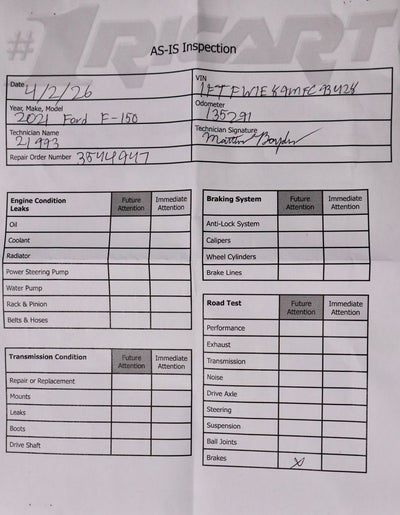 #1 RICART
AS-IS Inspection
Date 4/2/26
VIN
Year, Make, Model
2021 Ford F-150
Odometer
135291
Technician Name
21993
Technician Signature
Repair Order Number 3544947
Engine Condition Leaks Future Attention Immediate Attention
Oil
Coolant
Radiator
Power Steering Pump
Water Pump
Rack & Pinion
Belts & Hoses
Transmission Condition Future Attention Immediate Attention
Repair or Replacement
Mounts
Leaks
Boots
Drive Shaft
Braking System Future Attention Immediate Attention
Anti-Lock System
Calipers
Wheel Cylinders
Brake Lines
Road Test Future Attention Immediate Attention
Performance
Exhaust
Transmission
Noise
Drive Axle
Steering
Suspension
Ball Joints
Brakes X